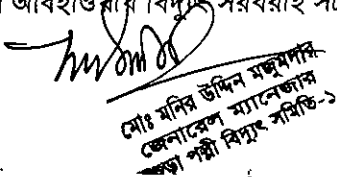 আবহাওয়ার বিদ্যুৎ সরবরাহ
মোঃ মনির উদ্দিন মজুমদার
জেনারেল ম্যানেজার
পল্লী বিদ্যুৎ সমিতি-১